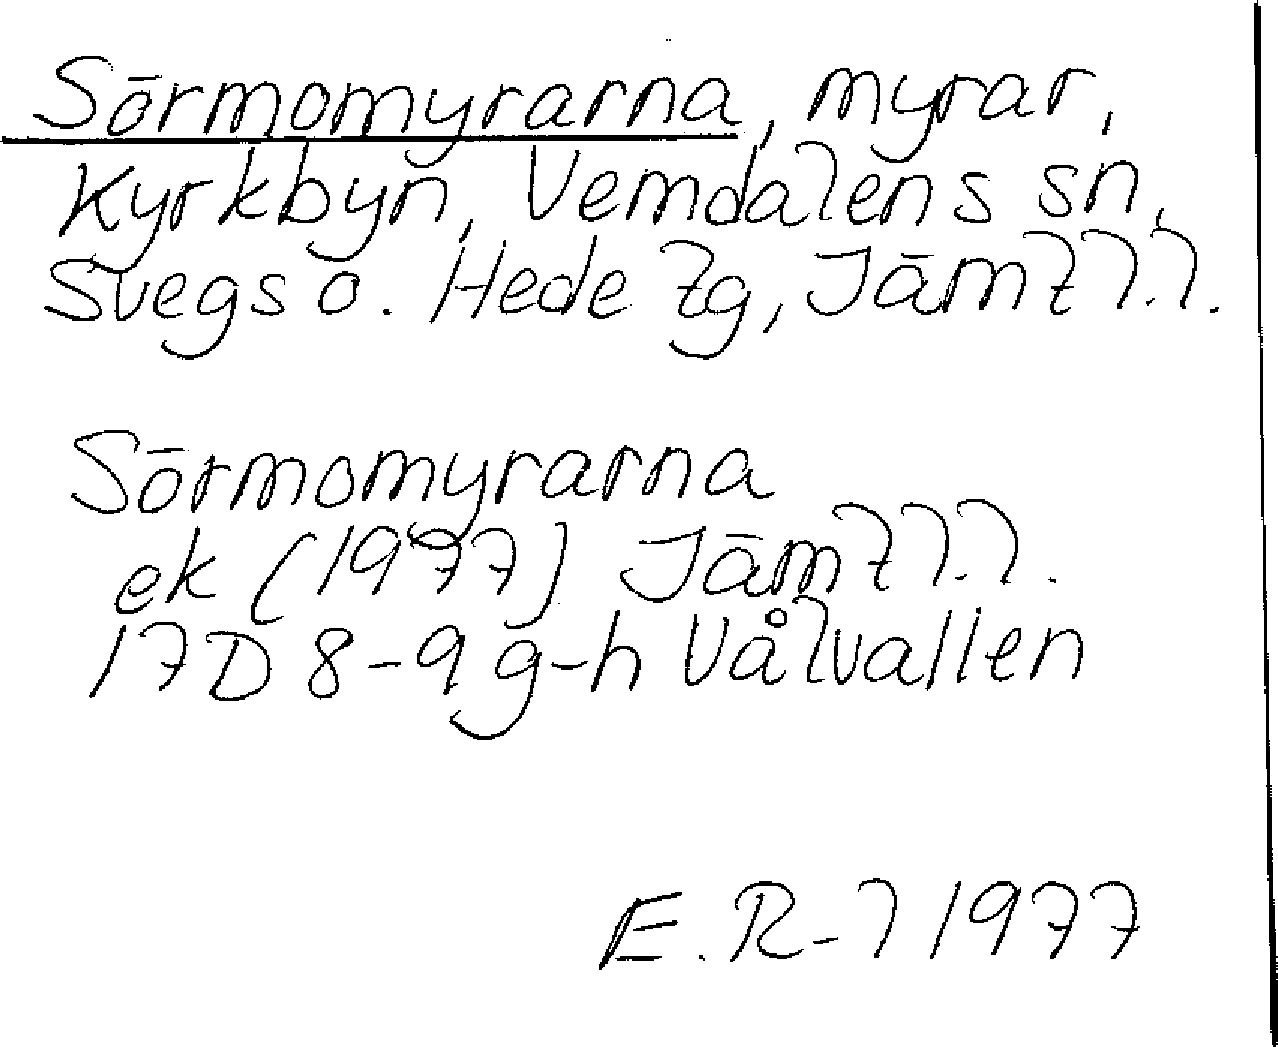 Sörmomyrarna, myrar,
Kyrkbyn, Vemdalens sn,
Svegs o. Hede lg, Jämtl.l.
Sörmomyrarna
ek (1977) Jämtl.l.
17D 8-9 g-h Vålvallen
E. R-l 1977